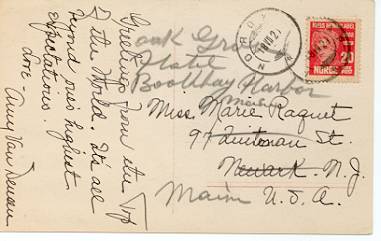 Greetings from the Top
of the World. It's all
beyond our highest
expectations.
Love - Anny Van
Oak Grove
Hotel
Boothbay Harbor
Maine
Miss. Marie Raquet
97 St.
Newark. N.J.
Maine U.S.A.
NORD
20
NORGE